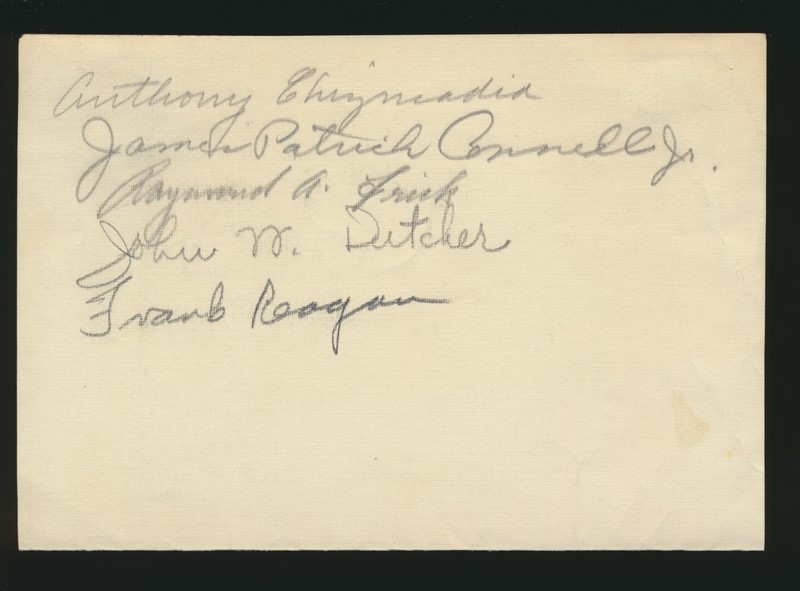 Anthony Chizmadia
James Patrick Connell Jr.
Raymond A. Frick
John W. Dutcher
Frank Reagan